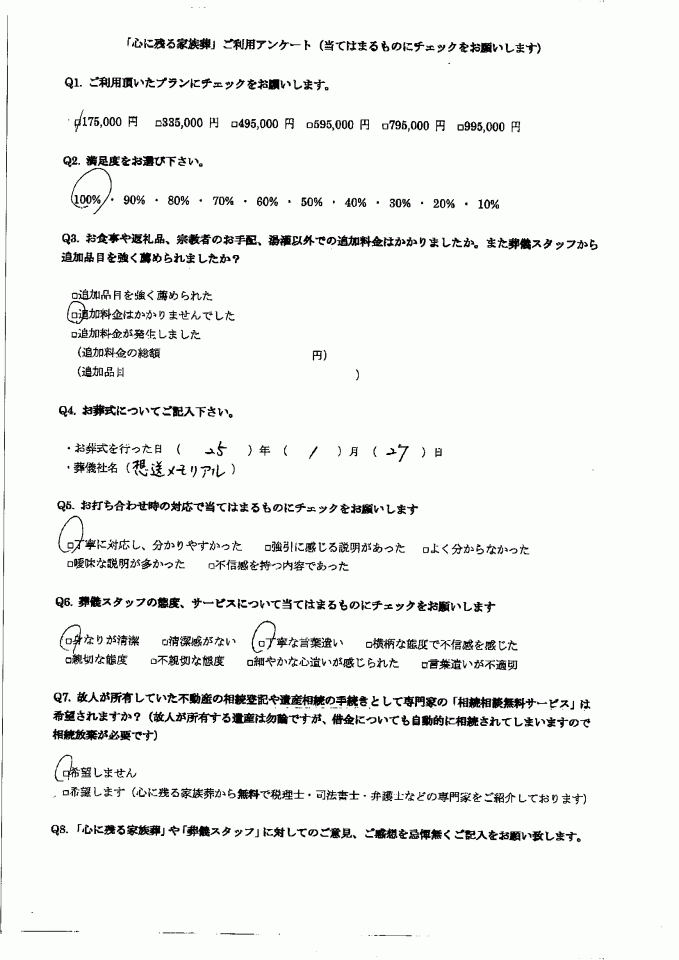 「心に残る家族葬」ご利用アンケート（当てはまるものにチェックをお願いします）
Q1. ご利用頂いたプランにチェックをお願いします。
□175,000 円 □335,000 円 □495,000 円 □595,000 円 □795,000 円 □995,000 円
Q2. 満足度をお選び下さい。
100% ・ 90% ・ 80% ・ 70% ・ 60% ・ 50% ・ 40% ・ 30% ・ 20% ・ 10%
Q3. お食事や返礼品、宗教者のお手配、湯灌以外での追加料金はかかりましたか。また葬儀スタッフから
追加品目を強く薦められましたか？
□追加品目を強く薦められた
□追加料金はかかりませんでした
□追加料金が発生しました
（追加料金の総額 円）
（追加品目 ）
Q4. お葬式についてご記入下さい。
・お葬式を行った日 （ 25 ）年 （ 1 ）月 （ 27 ）日
・葬儀社名（想送メモリアル）
Q5. お打ち合わせ時の対応で当てはまるものにチェックをお願いします
□丁寧に対応し、分かりやすかった □強引に感じる説明があった □よく分からなかった
□曖昧な説明が多かった □不信感を持つ内容であった
Q6. 葬儀スタッフの態度、サービスについて当てはまるものにチェックをお願いします
□身なりが清潔 □清潔感がない □丁寧な言葉遣い □横柄な態度で不信感を感じた
□親切な態度 □不親切な態度 □細やかな心遣いが感じられた □言葉遣いが不適切
Q7. 故人が所有していた不動産の相続登記や遺産相続の手続きとして専門家の「相続相談無料サービス」は
希望されますか？（故人が所有する遺産は勿論ですが、借金についても自動的に相続されてしまいますので
相続放棄が必要です）
□希望しません
□希望します（心に残る家族葬から無料で税理士・司法書士・弁護士などの専門家をご紹介しております）
Q8. 「心に残る家族葬」や「葬儀スタッフ」に対してのご意見、ご感想を忌憚無くご記入をお願い致します。